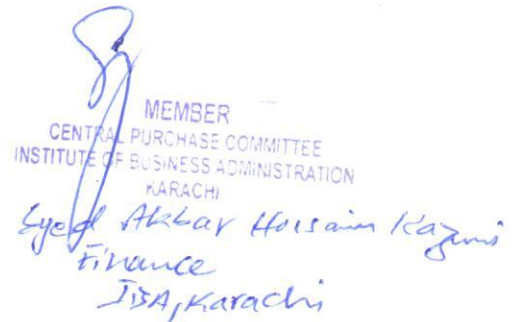 MEMBER
CENTRAL PURCHASE COMMITTEE
INSTITUTE OF BUSINESS ADMINISTRATION
KARACHI
Syed Akbar Hossain Kazmi
Finance
IBA, Karachi